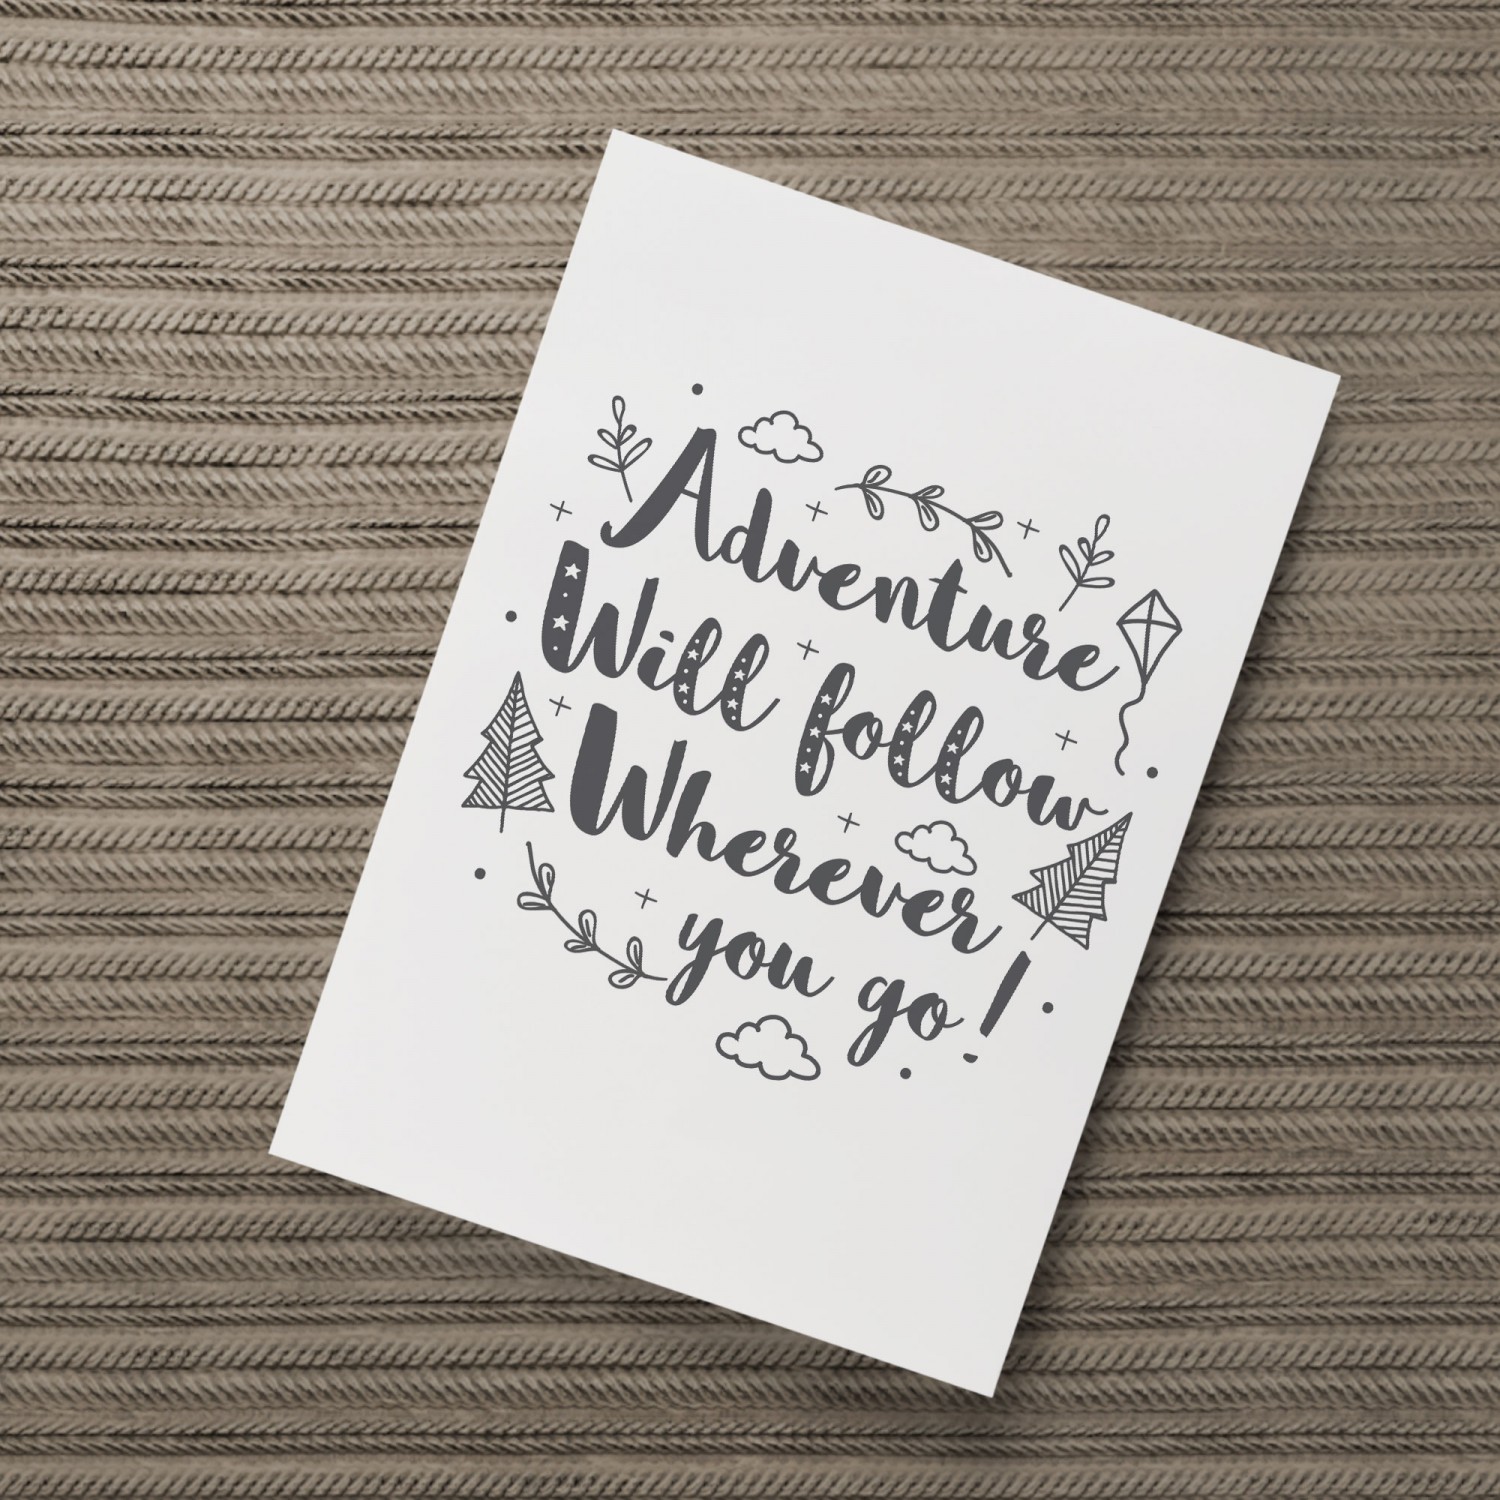 Adventure
Will follow
Wherever
you go!